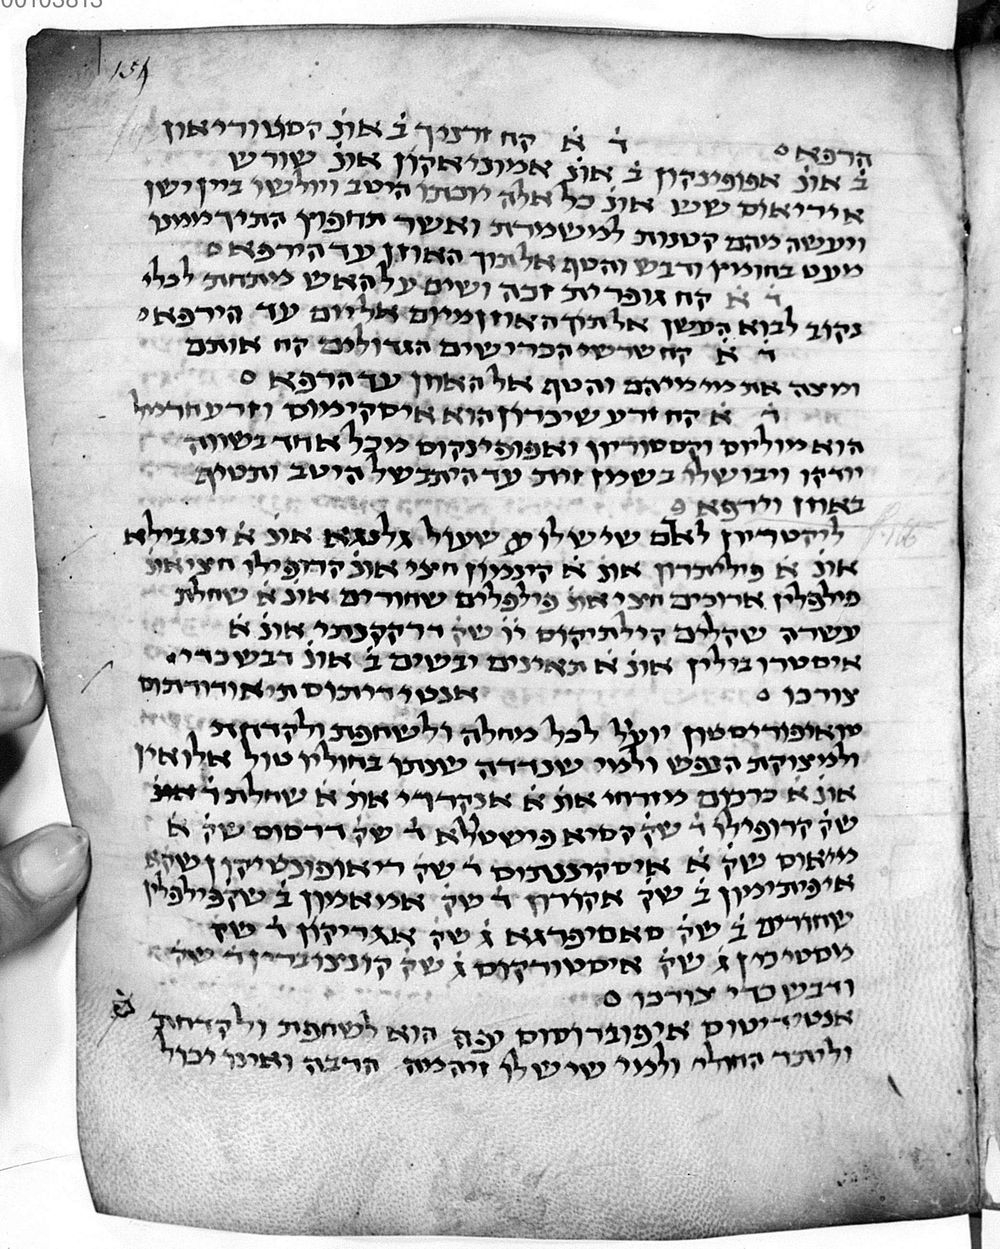 00103813
154
הרפא ד׳ א׳ קח זרניך ב׳ אונ׳ קסטוריאון
ב׳ אונ׳ אפופינקון ב׳ אונ׳ אמוניאקון אונ׳ שורש
איריאוס שש אונ׳ כל אלה יוכתו היטב ויולושו ביין ישן
ויעשה מהם קטנות למשמרת ואשר תחפוץ התיך ממנו
מעט בחומץ ודבש והטף אל תוך האוזן עד הירפא
ד׳ א׳ קח גופרית זכה ושים על האש מתחת לכלי
נקוב לבוא העשן אל תוך האוזן מיום אל יום עד הירפא
ד׳ א׳ קח שרשי הכרישים הגדולים קח אותם
ומצה את מימיהם והטף אל האוזן עד הרפא
ד׳ א׳ קח זרע שיכרון הוא איסקימוס וזרע חרמל
הוא מוליוס וקסטוריון ואפופינקוס מכל אחד בשווה
יודקו ויבושלו בשמן זית עד היתבשל היטב ותטיף
באוזן וירפא
ליקטריון לאדם שיש לו שעול גלנגא אונ׳ א׳ זנגבילא
אונ׳ א׳ פוליתרון אונ׳ א׳ קינמון חצי אונ׳ קרופילו חצי אונ׳
פילפלין ארוכים חצי אונ׳ פילפלים שחורים אונ׳ א׳ שחלת
עשרה שקלים קילתיקוס יו׳ שק׳ דרקקנתי אונ׳ א׳
איסטרובילין אונ׳ א׳ תאינים יבשים ב׳ אונ׳ דבש כדי
צורכו אנטידיתוס תיאודורתוס
טואופוריסטון יועיל לכל מחלה ולשחפת ולקדחת
ולמצוקת הנפש ולמי שנדדה שנתו בחוליו טול אלואין
אונ׳ א׳ כרכום מזרחי אונ׳ א׳ אנקדרדי אונ׳ א׳ שחלת ד׳
שק׳ קרופילו ד׳ שק׳ קסיא פישטולא ד׳ שק׳ דרסוס שק׳ א׳
מיאוס שק׳ א׳ איסקיננתוס ד׳ שק׳ ריאופונטיקון שק׳ א׳
איפיתימון ב׳ שק׳ אקורו ד׳ שק׳ אמאמון ב׳ שק׳ פילפלין
שחורים ב׳ שק׳ סאסיפרגא ג׳ שק׳ אגריקון ד׳ שק׳
מסטיכין ג׳ שק׳ איסטורקוס ג׳ שק׳ קונצוברין ד׳ שק׳
ודבש כדי צורכו
אנטידיטוס איפוברוסוס יפה הוא לשחפת ולקדחת
וליתר החולי ולמי שיש לו זיהמה הרבה ואינו יכול